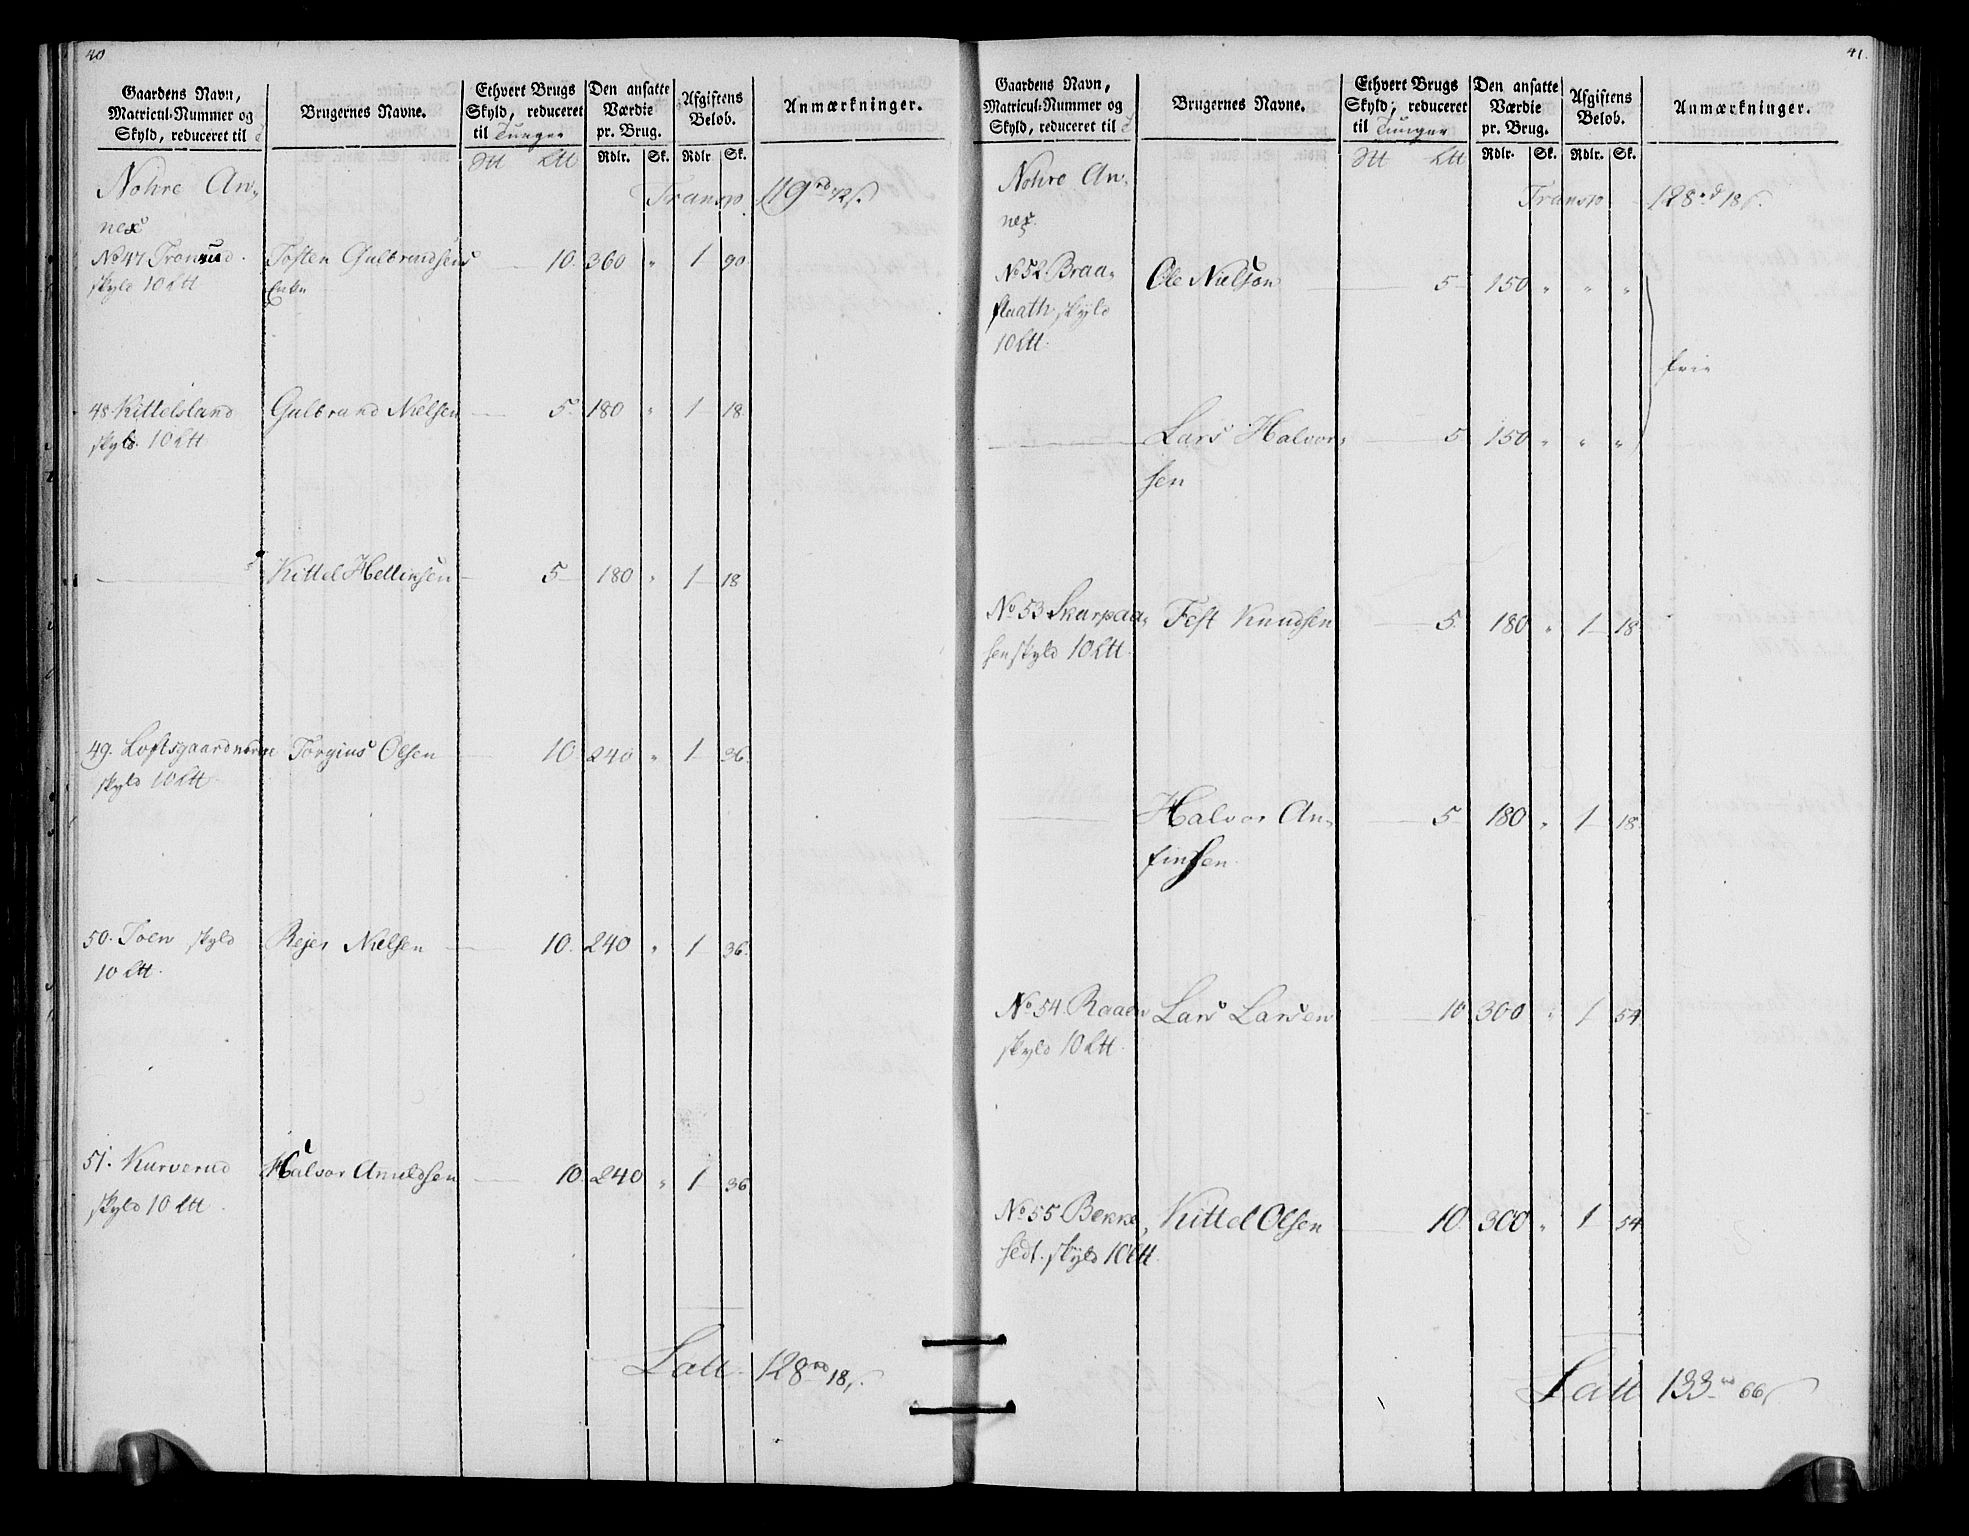 40
Gaardens Navn, Matricul-Nummer og Skyld, reduceret til
Brugernes Navne.
Ethvert Brugs Skyld, reduceret til Tunger
Den ansatte Værdie pr. Brug.
Afgiftens Beløb.
Anmærkninger.
Rdlr. Sk. Rdlr Sk.
Nohre An-
nex
Transp. 119 rd 72 s.
No 47 Tronrud Tosten Gulbrandsens 10. 360 " 1 90
skyld 10 Ltt Enke
48 Kittelsland Gulbrand Nielsen 5. 180 " 1 18
skyld. 10 Ltt
Kittel Hellinsen 5 180 " 1 18
49. Loftsgaardnordre Torgius Olsen 10 240 " 1 36.
skyld 10 Ltt
50. Toen skyld Rejer Nielsen 10. 240 " 1 36.
10 Ltt.
51. Kurverud Halvor Amundsen 10. 240 " 1 36
skyld 10 Ltt
Latt. 128 rd 18 s.
41.
Gaardens Navn, Matricul-Nummer og Skyld, reduceret til
Brugernes Navne.
Ethvert Brugs Skyld, reduceret til Tunger
Den ansatte Værdie pr. Brug.
Afgiftens Beløb.
Anmærkninger.
Rdlr. Sk. Rdlr. Sk.
Nohre An-
nex.
Transp 128 rd 18 s.
No 52 Braa- Ole Nielsen 5 150 " " "
flaath skyld
10 Ltt.
frie
Lars Halvor- 5 150 " " "
sen
No 53 Skarpaa- Fest Knudsen 5. 180 " 1 18
sen skyld 10 Ltt.
Halvor An- 5 180 " 1 18
finsen.
No 54 Raaen Lars Larsen 10 300 " 1 54
skyld 10 Ltt.
No 55 Bekke- Kittel Olsen 10. 300 " 1 54
sedt. skyld 10 Ltt
Latt 133 rd 66 s